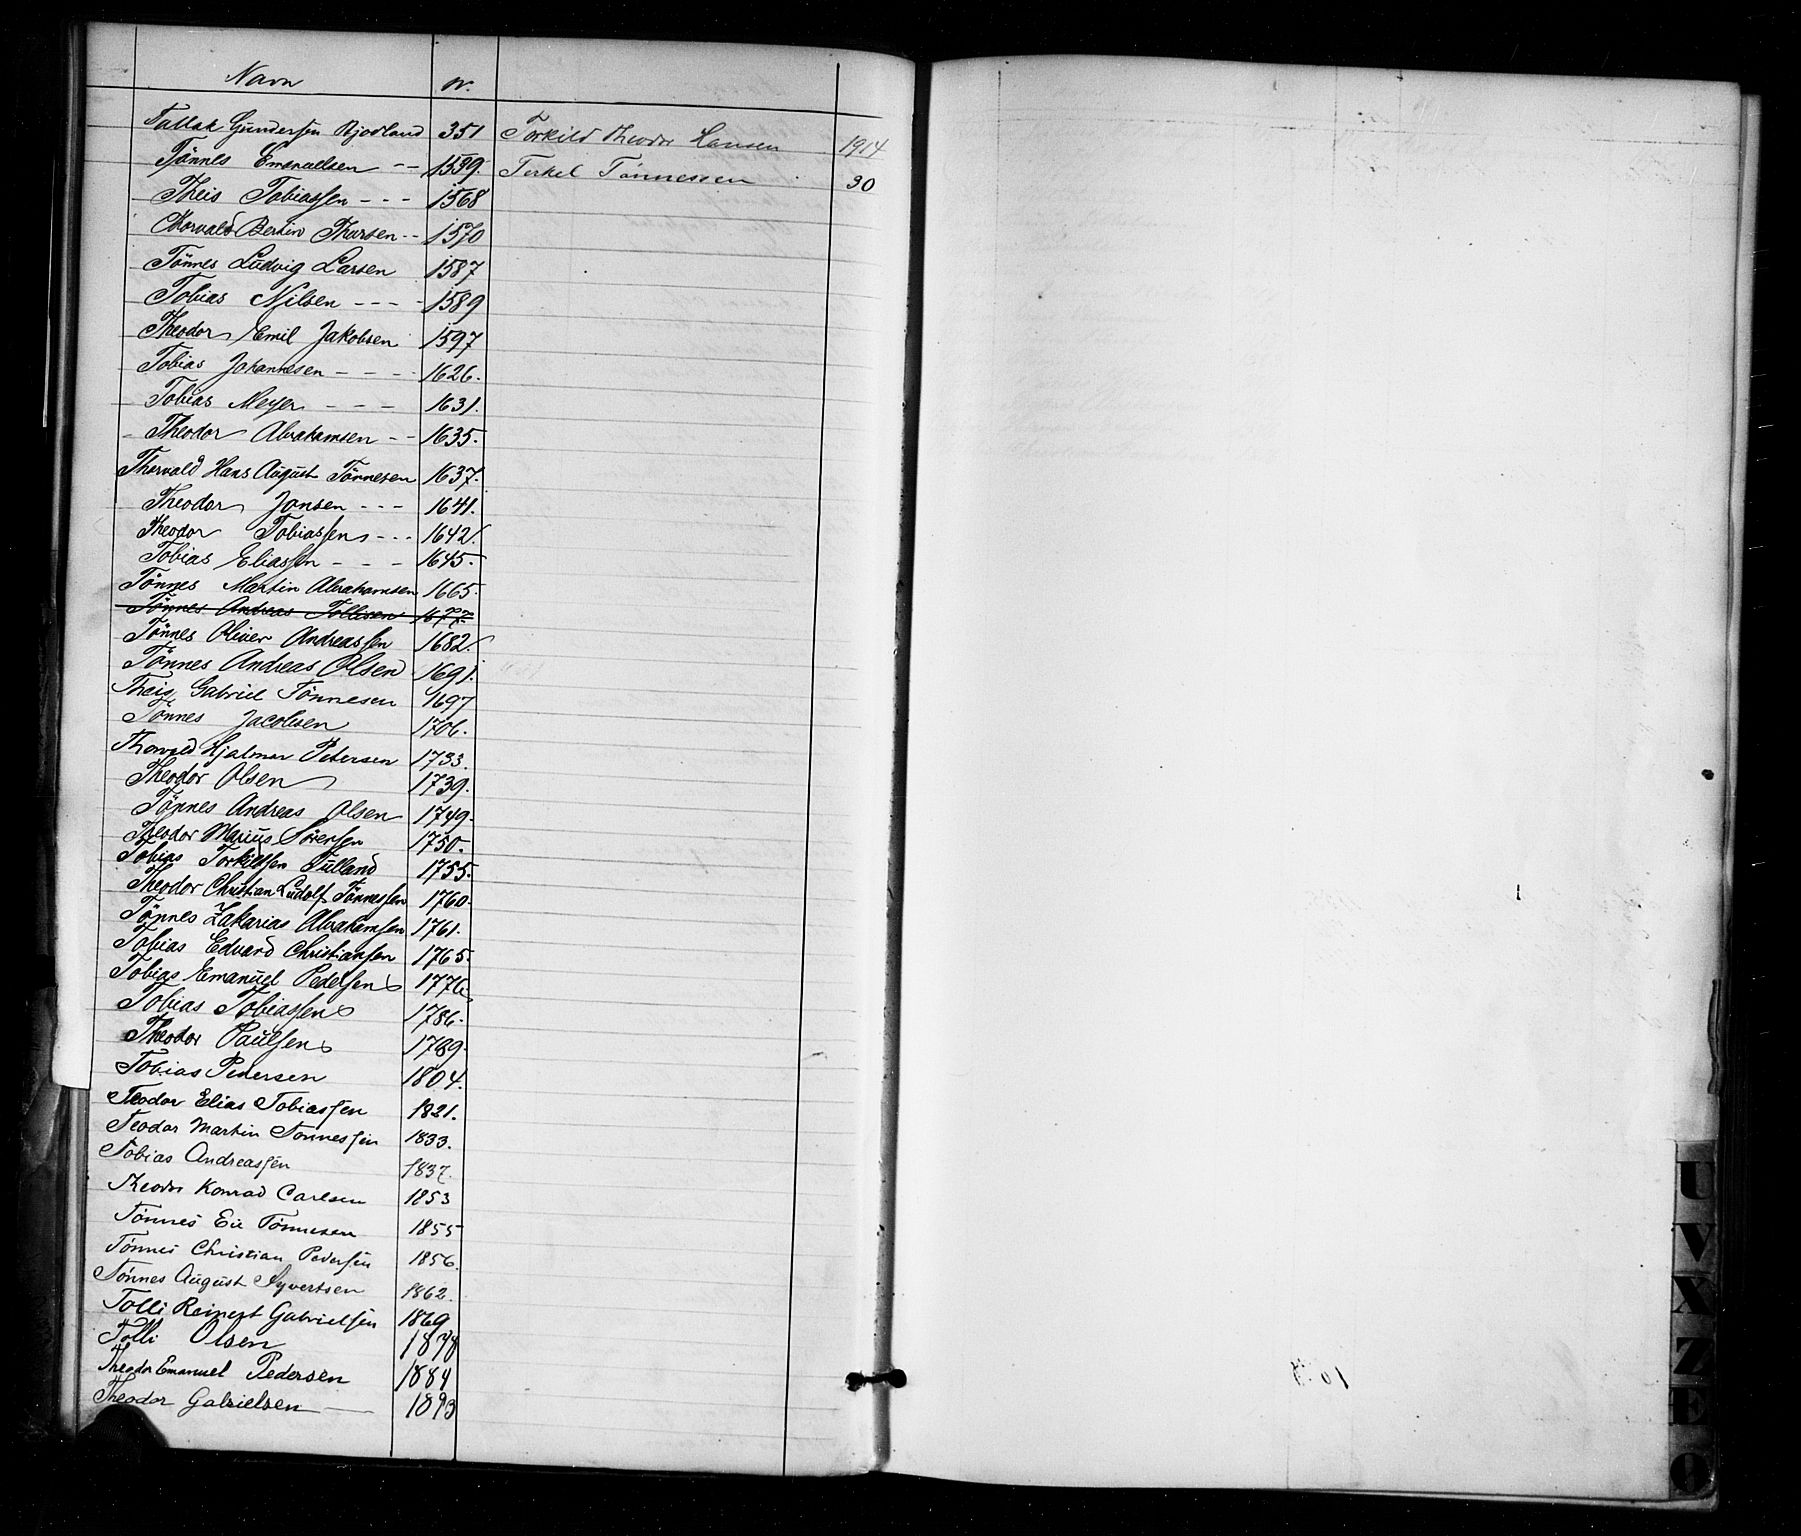 Navn nr.
Tallak Gundersen Bjodland 351
Tönnes Emanuelsen - - 1539.
Theis Tobiassen - - - 1568
Thorvald Bertin Thorsen - - 1570
Tönnes Ludvig Larsen 1587
Tobias Nilsen - - - - 1589
Theodor Emil Jakobsen 1597
Tobias Johannesen - - - - 1626.
Tobias Meyer - - - 1631.
Theodor Abrahamsen - - 1635.
Thorvald Hans August Tönnesen 1637.
Theodor Jonsen - - - 1641.
Theodor Tobiassen - - - 1642.
Tobias Eliassen - - - 1645.
Tönnes Martin Abrahamsen 1665.
Tönnes Andreas Tollisen 1677.
Tönnes Oliver Andreassen 1682.
Tönnes Andreas Olsen 1691.
Theis Gabriel Tönnesen 1697
Tönnes Jacobsen 1706.
Thorvald Hjalmar Petersen 1733.
Theodor Olsen 1739.
Tönnes Andreas Olsen 1749.
Theodor Marius Sörensen 1750.
Tobias Torkildsen Tulland 1755.
Theodor Christian Ludolf Tönnessen 1760.
Tönnes Zakarias Abrahamsen 1761.
Tobias Edvard Christiansen 1765.
Tobias Emanuel Pedersen 1776.
Tobias Tobiassen 1786.
Theodor Paulsen 1789.
Tobias Pedersen 1804.
Teodor Elias Tobiassen 1821.
Teodor Martin Tonnessen 1833.
Tobias Andreassen 1837.
Theodor Konrad Carlsen 1853
Tønnes Eie Tønnesen 1855
Tønnes Christian Pedersen 1856.
Tønnes August Syvertsen 1862.
Tolli Reinert Gabrielsen 1869
Tolli Olsen 1878
Theodor Emanuel Pedersen 1884
Theodor Gabrielsen 1893
Torkild Theodor Hansen 1914
Terkel Tønnessen 30
U
V
X
Z
E
Ø